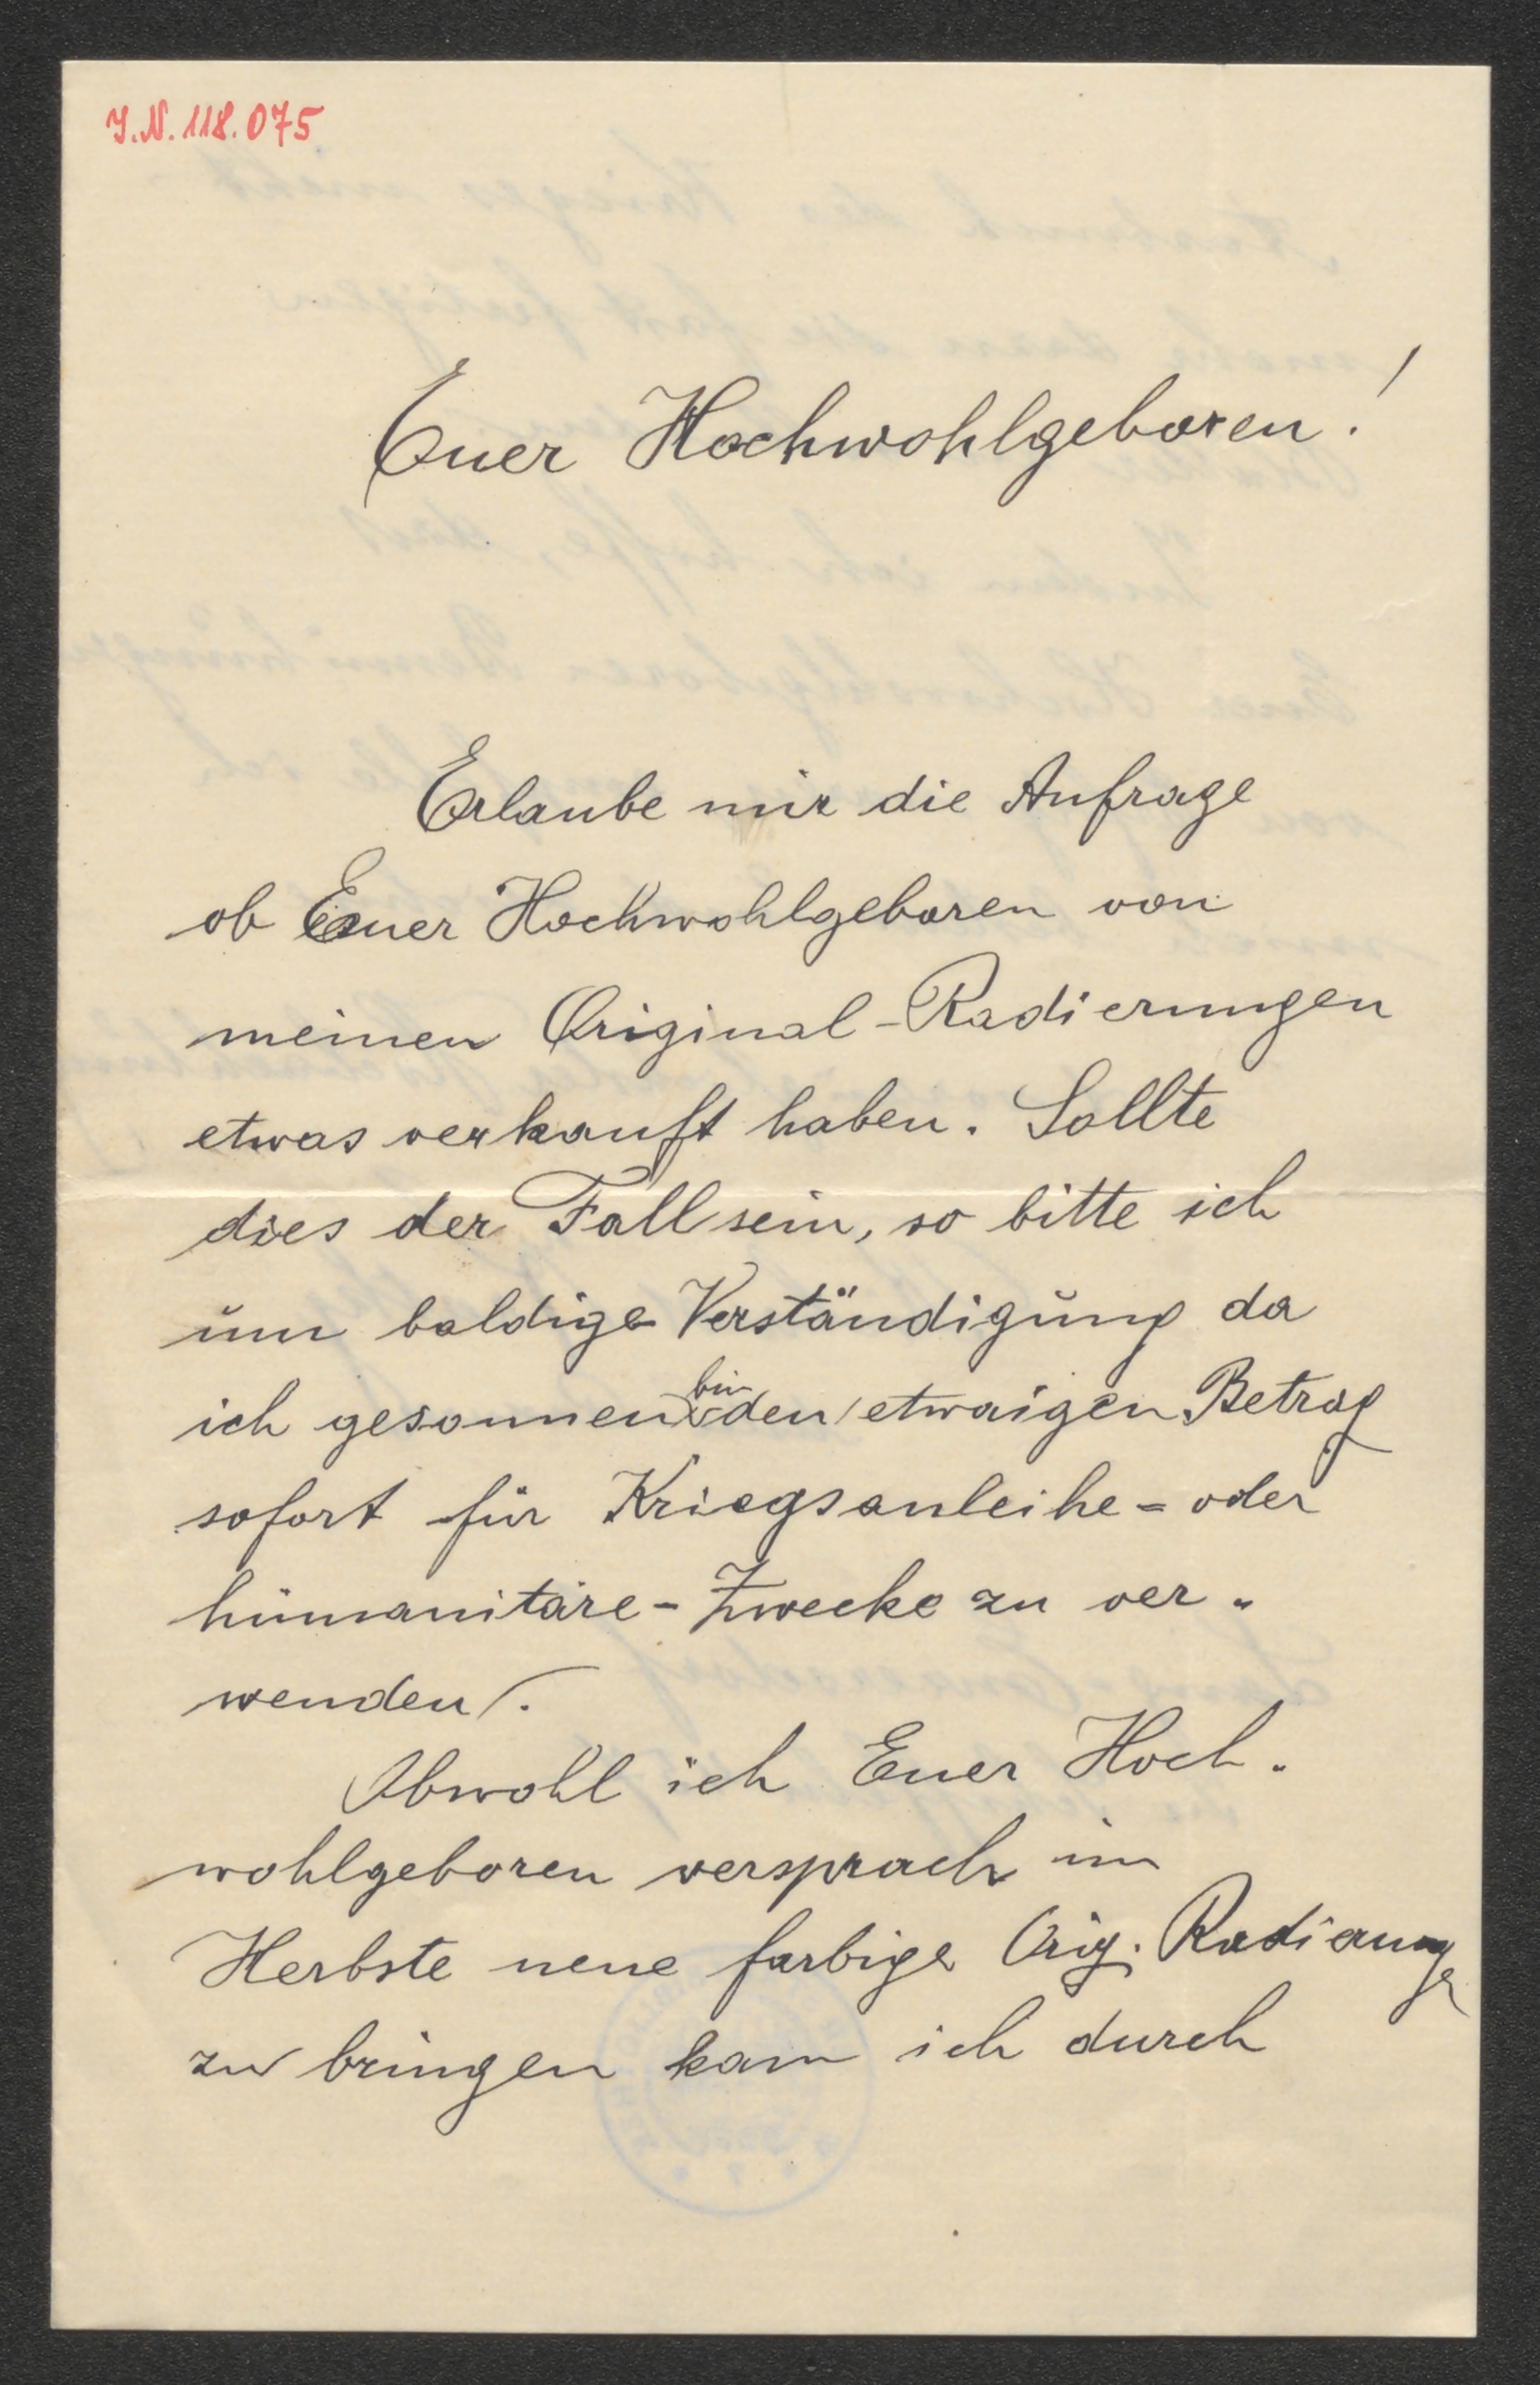 J.N. 118.075
Euer Hochwohlgeboren!
Erlaube mir die Anfrage
ob Euer Hochwohlgeboren von
meinen Original-Radierungen
etwas verkauft haben. Sollte
dies der Fall sein, so bitte ich
um baldige Verständigung da
ich gesonnen bin den etwaigen Betrag
sofort für Kriegsanleihe- oder
humanitäre-Zwecke zu ver-
wenden.
Obwohl ich Euer Hoch-
wohlgeboren versprach im
Herbste neue farbige Orig. Radierunge
zu bringen kam ich durch